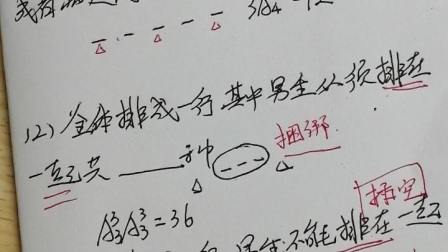 3A4 = 12
(2) 全体排成一行 其中男生必须排在
一起共____种 捆绑
A³₃A³₃=36
插空
男生不能排在一起